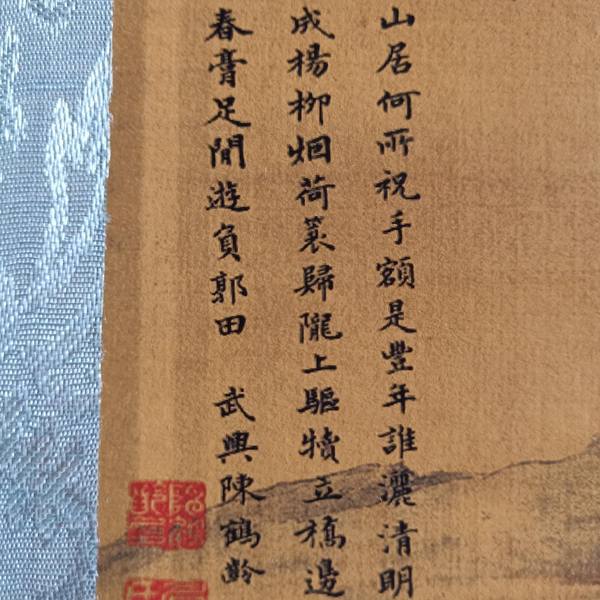 山居何所祝手額是豐年誰灑清明
成楊柳烟荷蓑歸隴上驅犢立橋邊
春膏足閒遊負郭田 武興陳鶴齡